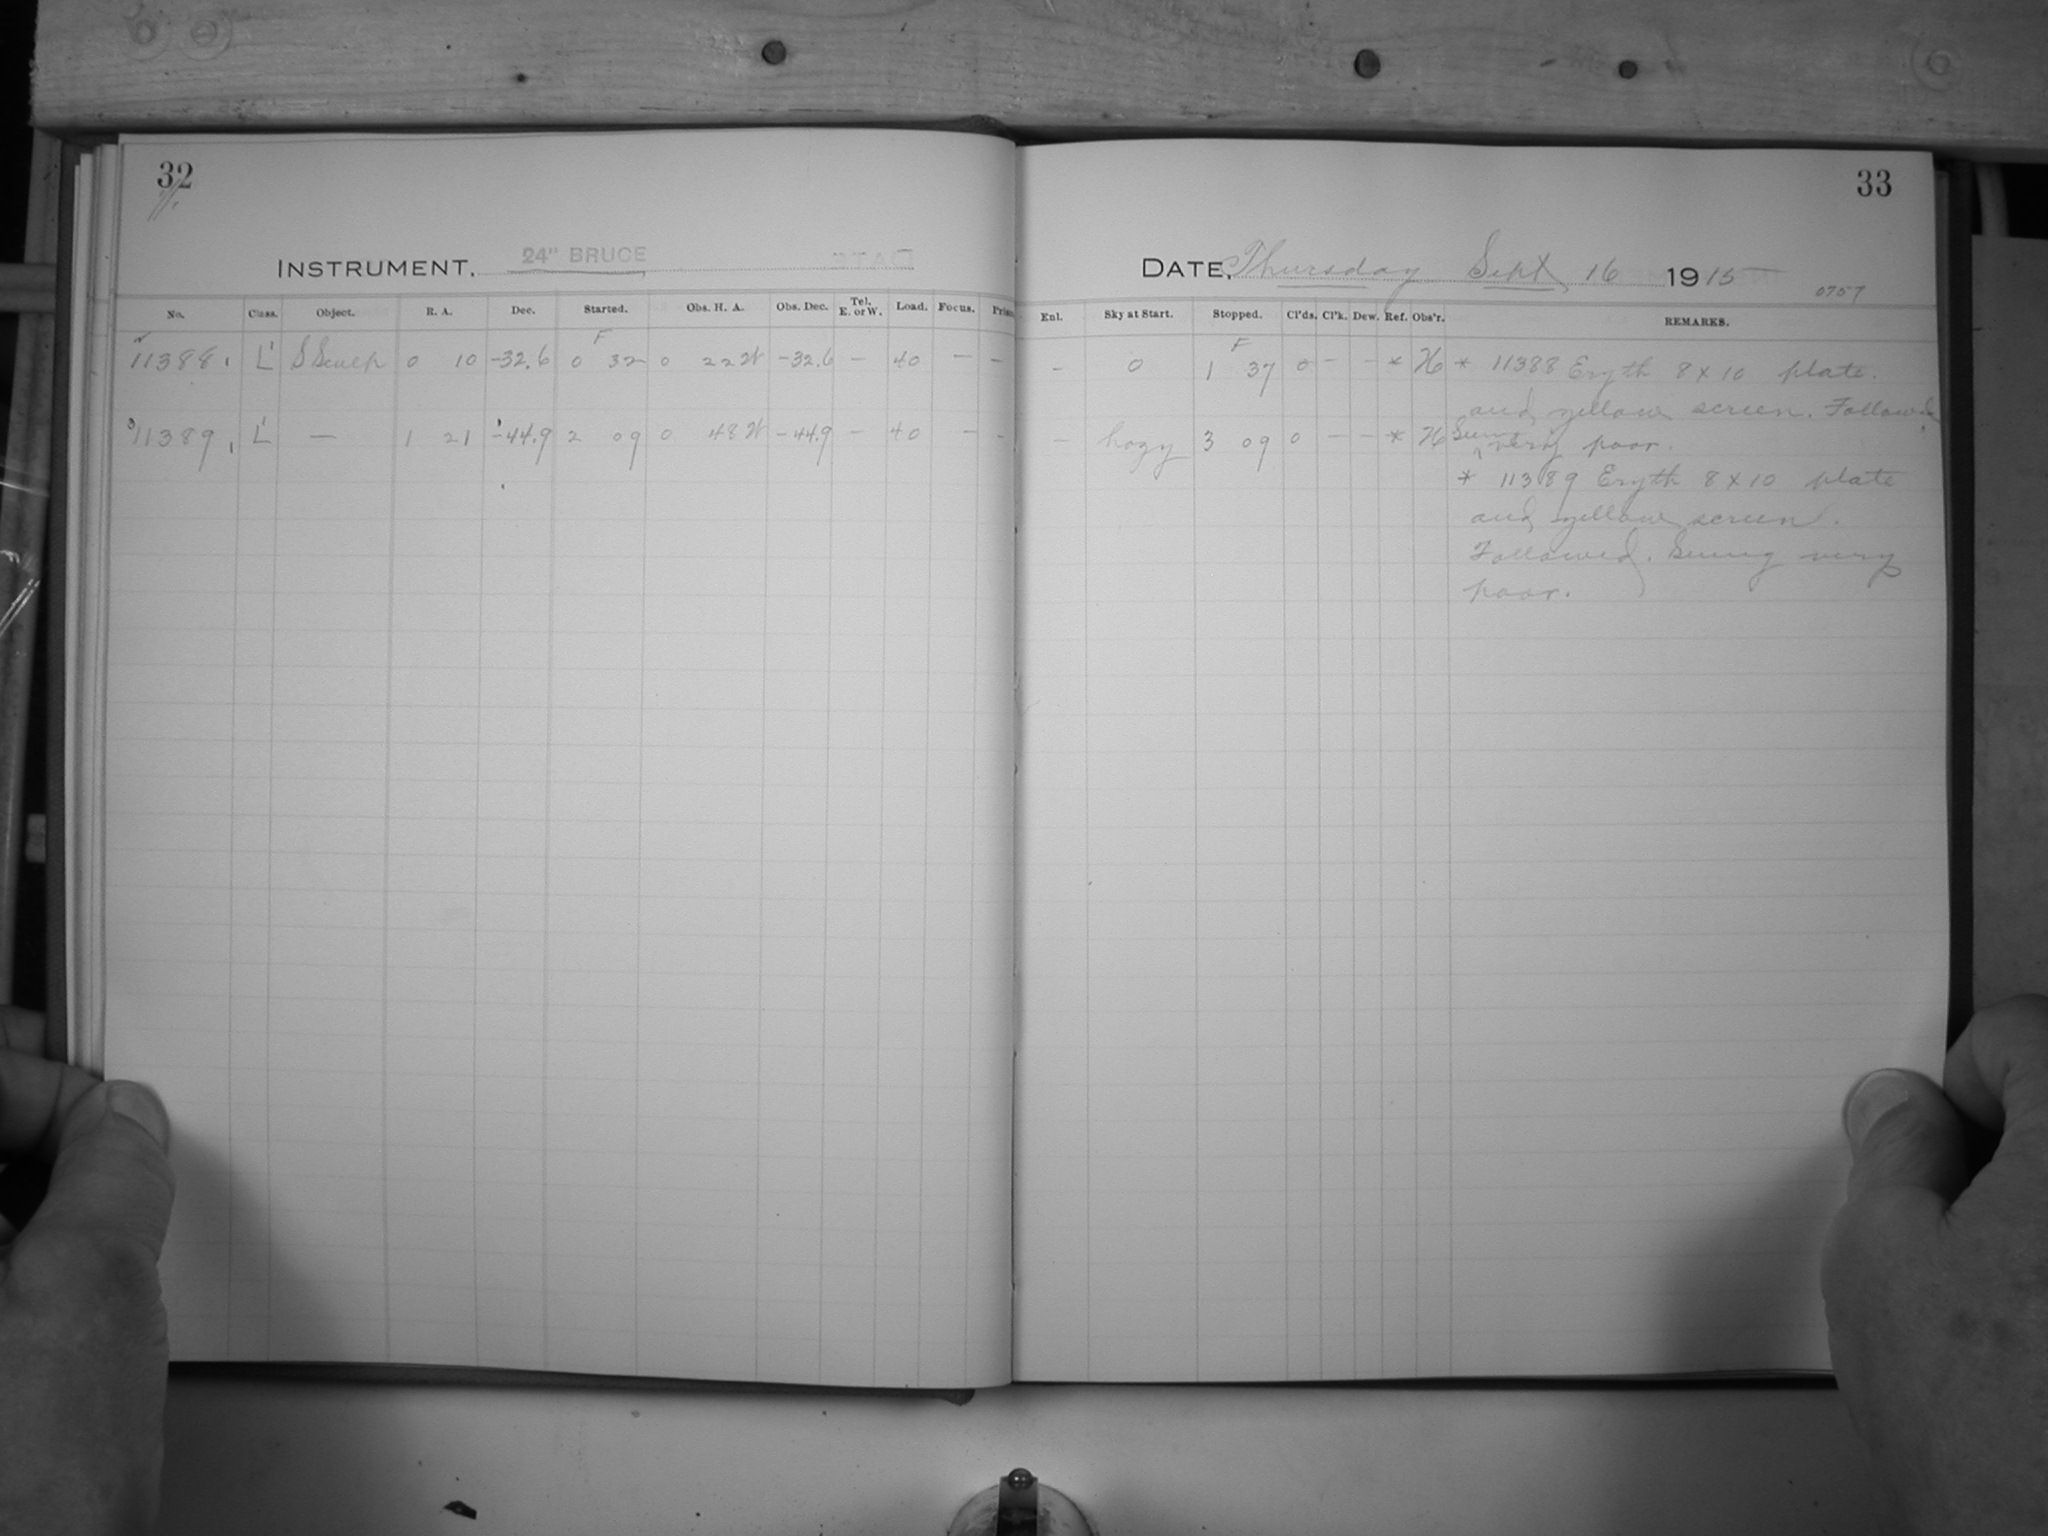 32
33
INSTRUMENT. 24" BRUCE
DATE. Thursday Sept 16 1915
0757
No. Class. Object. R. A. Dec. Started. Obs. H. A. Obs. Dec. Tel. E. or W. Load. Focus. Prism
Enl. Sky at Start. Stopped. Cl'ds. Cl'k. Dew. Ref. Obs'r. REMARKS.
11388 L' S Sculp 0 10 -32.6 0 32 0 22 W -32.6 - 40 - -
- 0 1 37 0 - - * H * 11388 Eryth 8 x 10 plate.
and yellow screen. Followed.
11389 L' — 1 21 -44.9 2 09 0 48 W -44.9 - 40 - -
- hazy 3 09 0 - - * H Seeing very poor.
* 11389 Eryth 8 x 10 plate
and yellow screen.
Followed. Seeing very
poor.